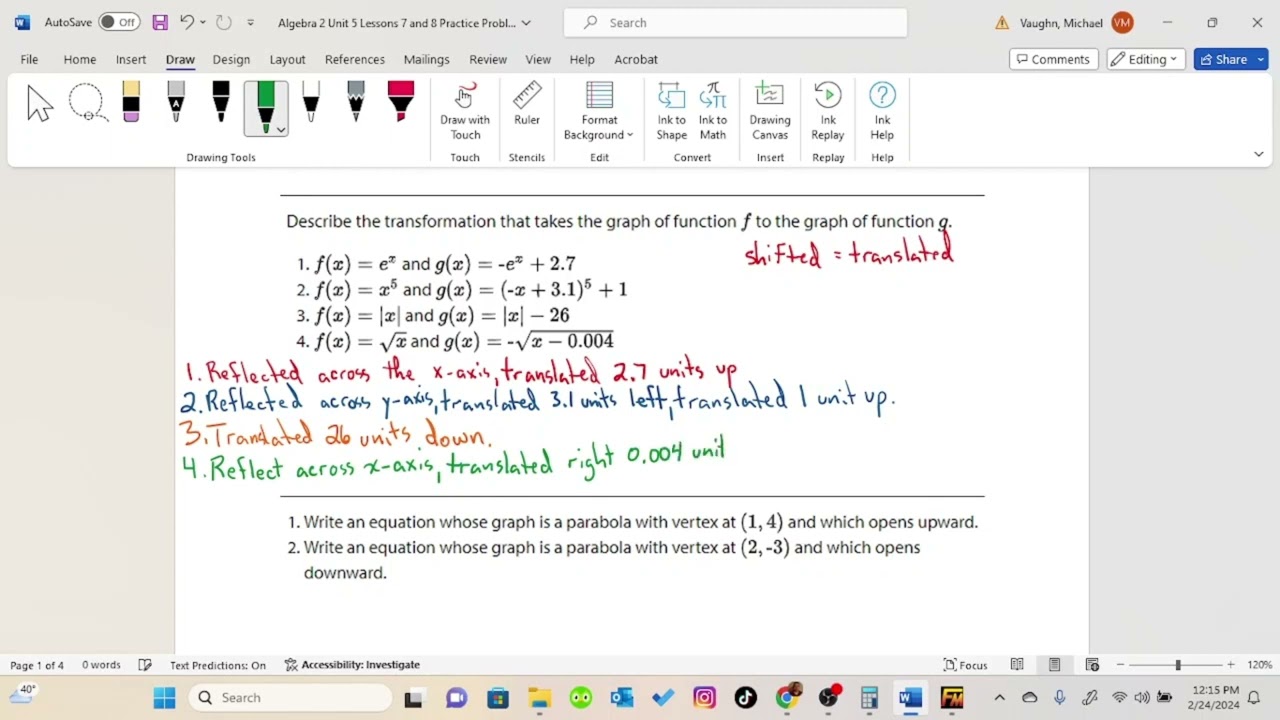 AutoSave Off Algebra 2 Unit 5 Lessons 7 and 8 Practice Probl... Search Vaughn, Michael VM
File Home Insert Draw Design Layout References Mailings Review View Help Acrobat Comments Editing Share
Draw with Touch Ruler Format Background Ink to Shape Ink to Math Drawing Canvas Ink Replay Ink Help
Drawing Tools Touch Stencils Edit Convert Insert Replay Help
Describe the transformation that takes the graph of function f to the graph of function g.
shifted = translated
1. f(x) = eˣ and g(x) = -eˣ + 2.7
2. f(x) = x⁵ and g(x) = (-x + 3.1)⁵ + 1
3. f(x) = |x| and g(x) = |x| − 26
4. f(x) = √x and g(x) = -√(x − 0.004)
1. Reflected across the x-axis, translated 2.7 units up
2. Reflected across y-axis, translated 3.1 units left, translated 1 unit up.
3. Translated 26 units down.
4. Reflect across x-axis, translated right 0.004 unit
1. Write an equation whose graph is a parabola with vertex at (1, 4) and which opens upward.
2. Write an equation whose graph is a parabola with vertex at (2, -3) and which opens
downward.
Page 1 of 4 0 words Text Predictions: On Accessibility: Investigate Focus 120%
40° Search 12:15 PM
2/24/2024